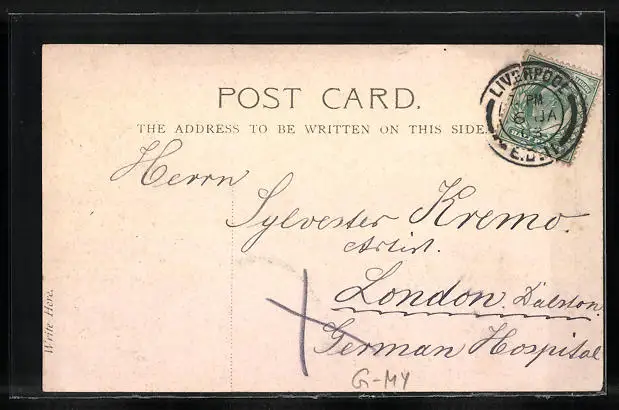 POST CARD.
THE ADDRESS TO BE WRITTEN ON THIS SIDE.
LIVERPOOL
PM
6 JA
Herrn
Sylvester Kremo.
Artist.
London. Dalston.
German Hospital
Write Here.
G-MY